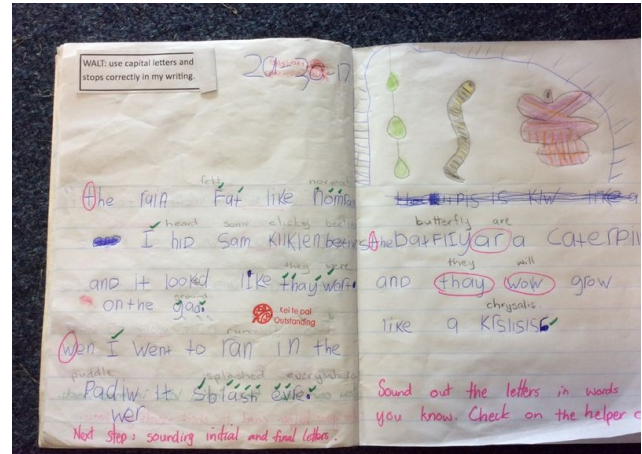 WALT: use capital letters and
stops correctly in my writing.
felt normal
the rain Fat like nomral
heard some clicky beetles
I hiD Sam KliKlen beetins
they were
and it looked like thay wort.
ground
on the gad.
Kei te pai
Outstanding
wen I went to ran in the
puddle splashed everywhere
Padlw. It sblash evre.
wer
Next step: sounding initial and final letters.
is like a
butterfly are
the batFliy ar a caterpil
they will
and thay wow grow
chrysalis.
like a Krslisis
Sound out the letters in words
you know. Check on the helper c